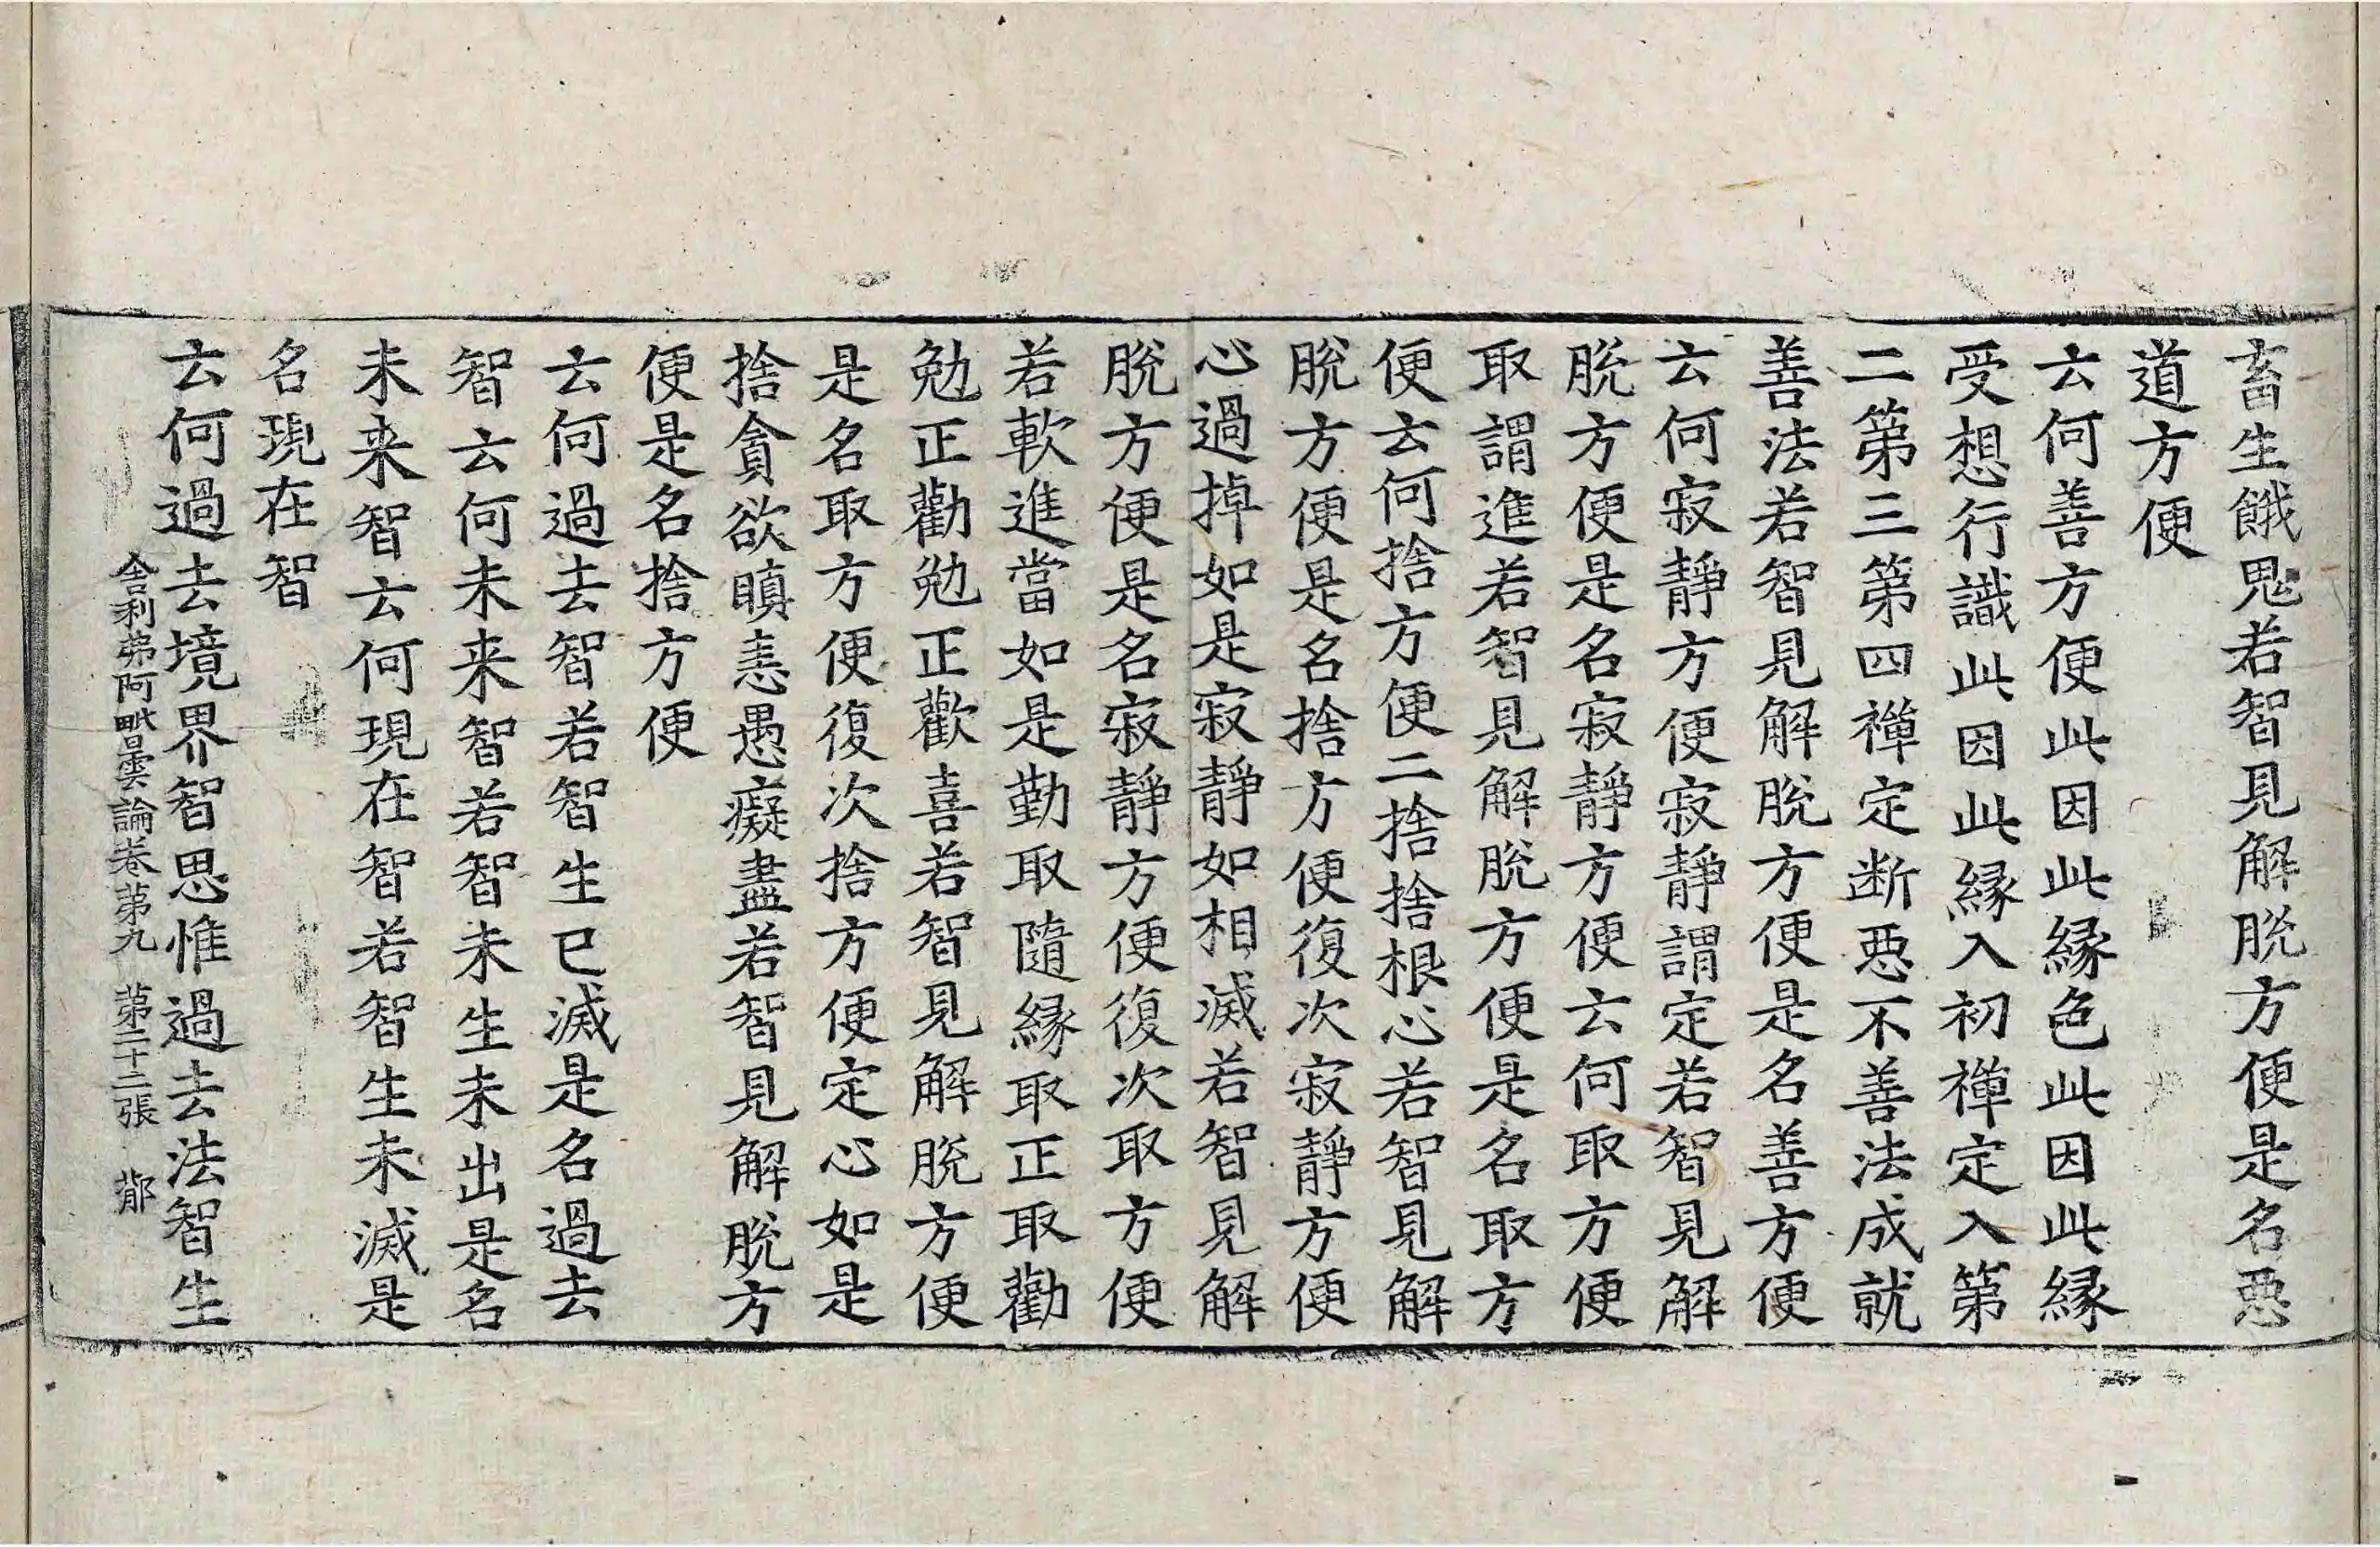 畜生餓鬼若智見解脫方便是名惡
道方便
云何善方便此因此縁色此因此縁
受想行識此因此縁入初禪定入第
二第三第四禪定断惡不善法成就
善法若智見解脫方便是名善方便
云何寂靜方便寂靜謂定若智見解
脫方便是名寂靜方便云何取方便
取謂進若智見解脫方便是名取方
便云何捨方便二捨捨根心若智見解
脫方便是名捨方便復次寂靜方便
心過掉如是寂靜如相滅若智見解
脫方便是名寂靜方便復次取方便
若軟進當如是勤取隨縁取正取勸
勉正勸勉正歡喜若智見解脫方便
是名取方便復次捨方便定心如是
捨貪欲瞋恚愚癡盡若智見解脫方
便是名捨方便
云何過去智若智生已滅是名過去
智云何未来智若智未生未出是名
未来智云何現在智若智生未滅是
名現在智
云何過去境界智思惟過去法智生
舍利弗阿毗曇論卷第九 第二十二張